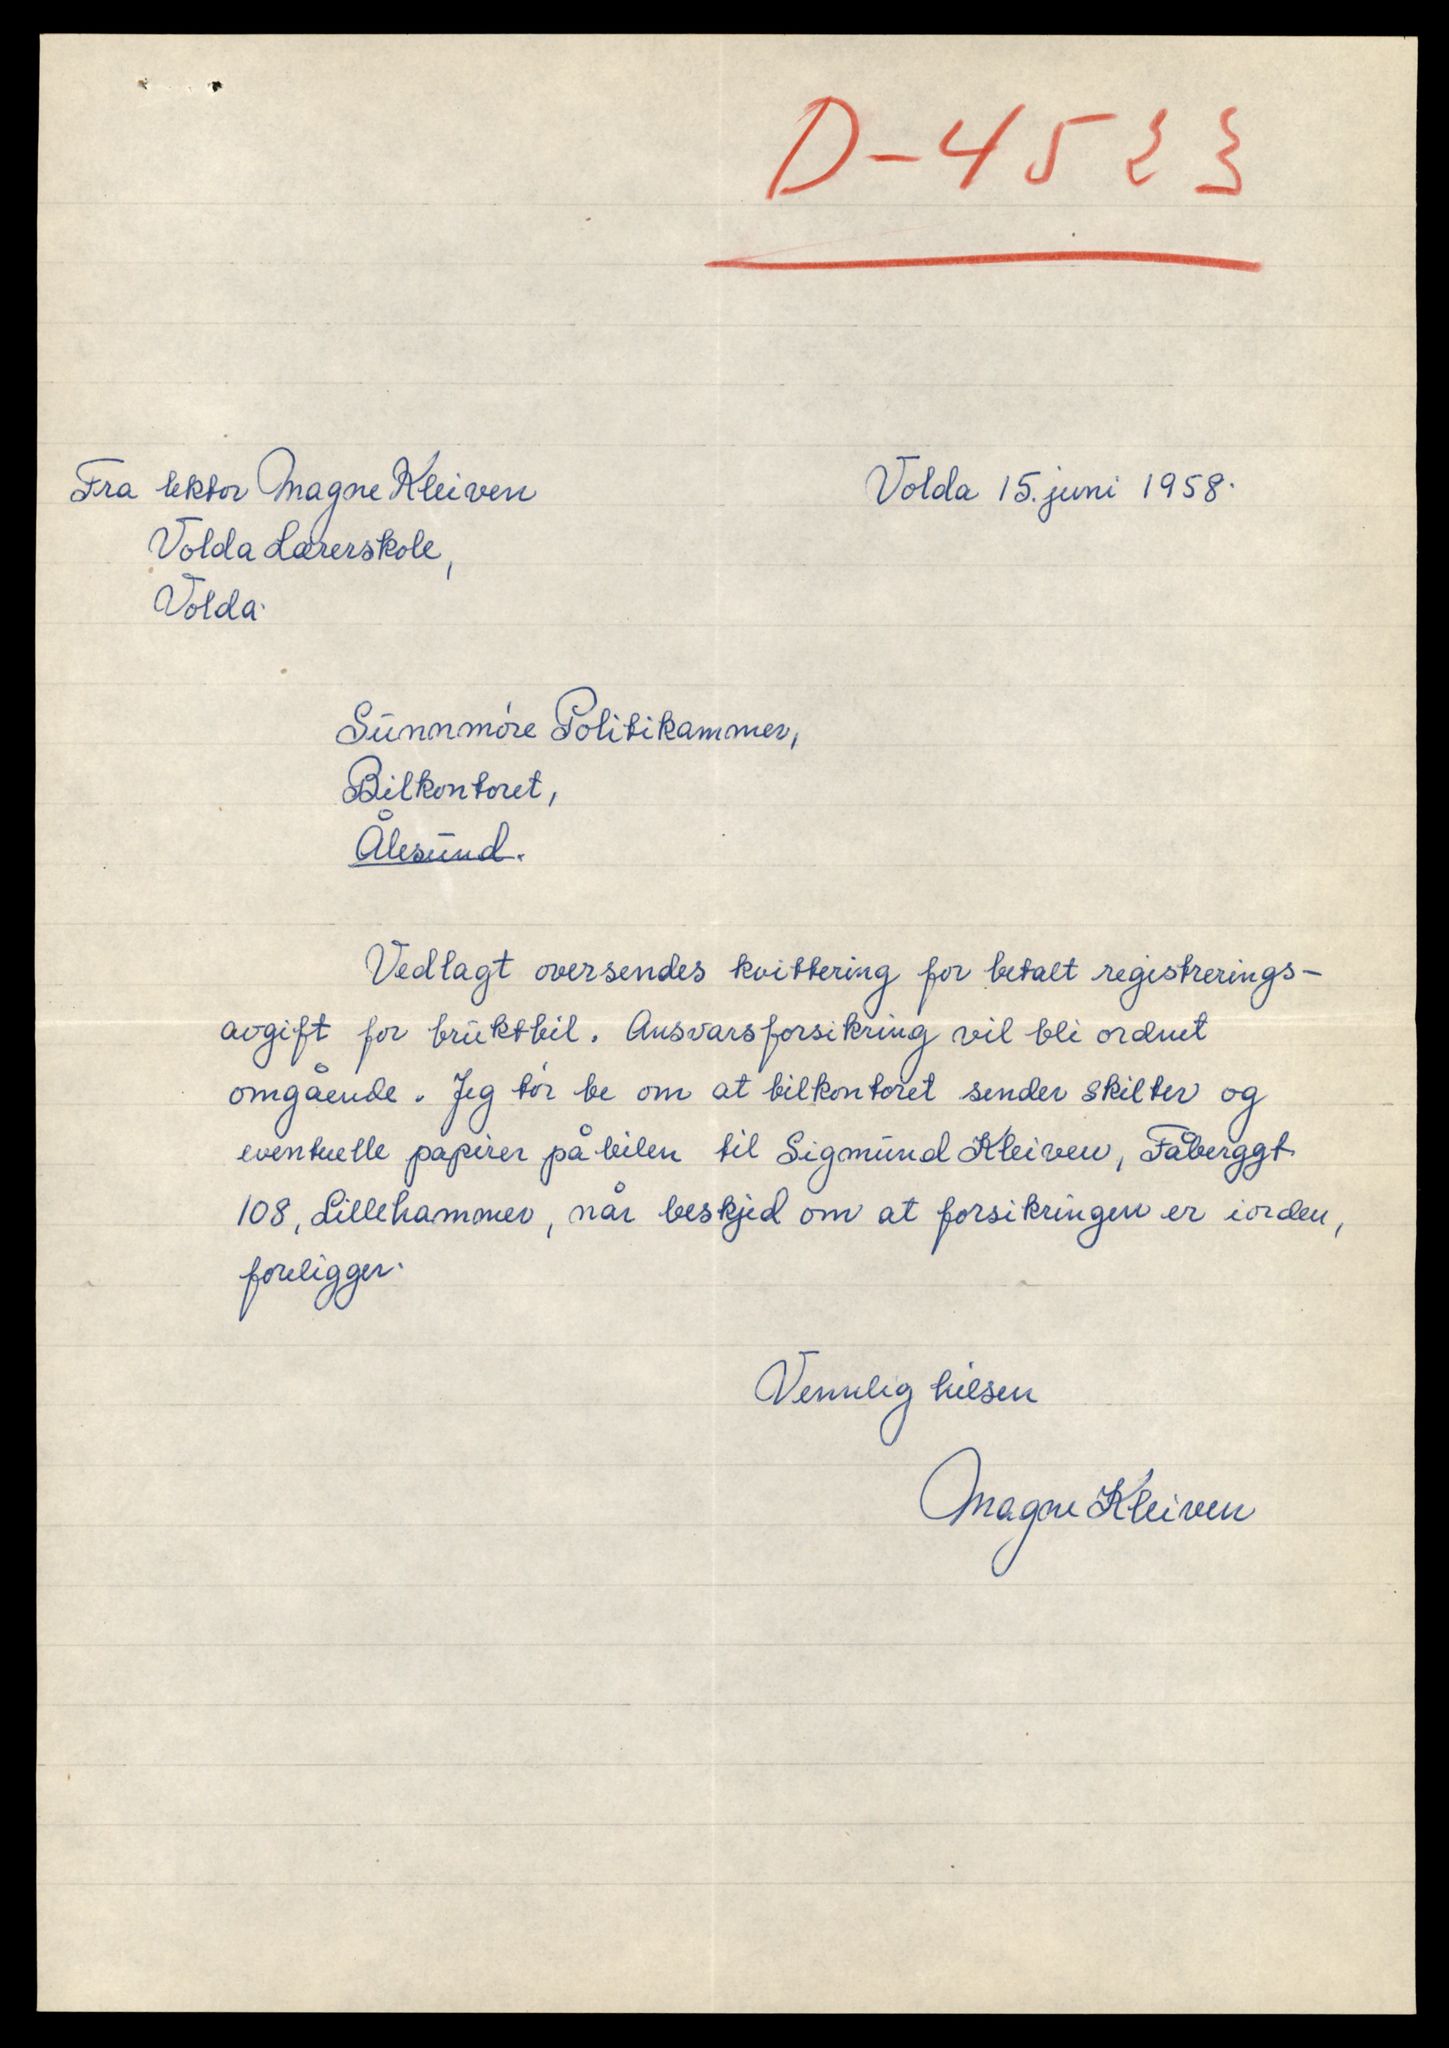 D-4523
Fra lektor Magne Kleiven
Volda 15. juni 1958.
Volda Lærerskole,
Volda.
Sunnmöre Politikammer,
Bilkontoret,
Ålesund.
Vedlagt oversendes kvittering for betalt registrerings-
avgift for bruktbil. Ansvarsforsikring vil bli ordnet
omgående. Jeg tör be om at bilkontoret sender skilter og
eventuelle papirer på bilen til Sigmund Kleiven, Fåberggt.
108, Lillehammer, når beskjed om at forsikringen er iorden,
foreligger.
Vennlig hilsen
Magne Kleiven